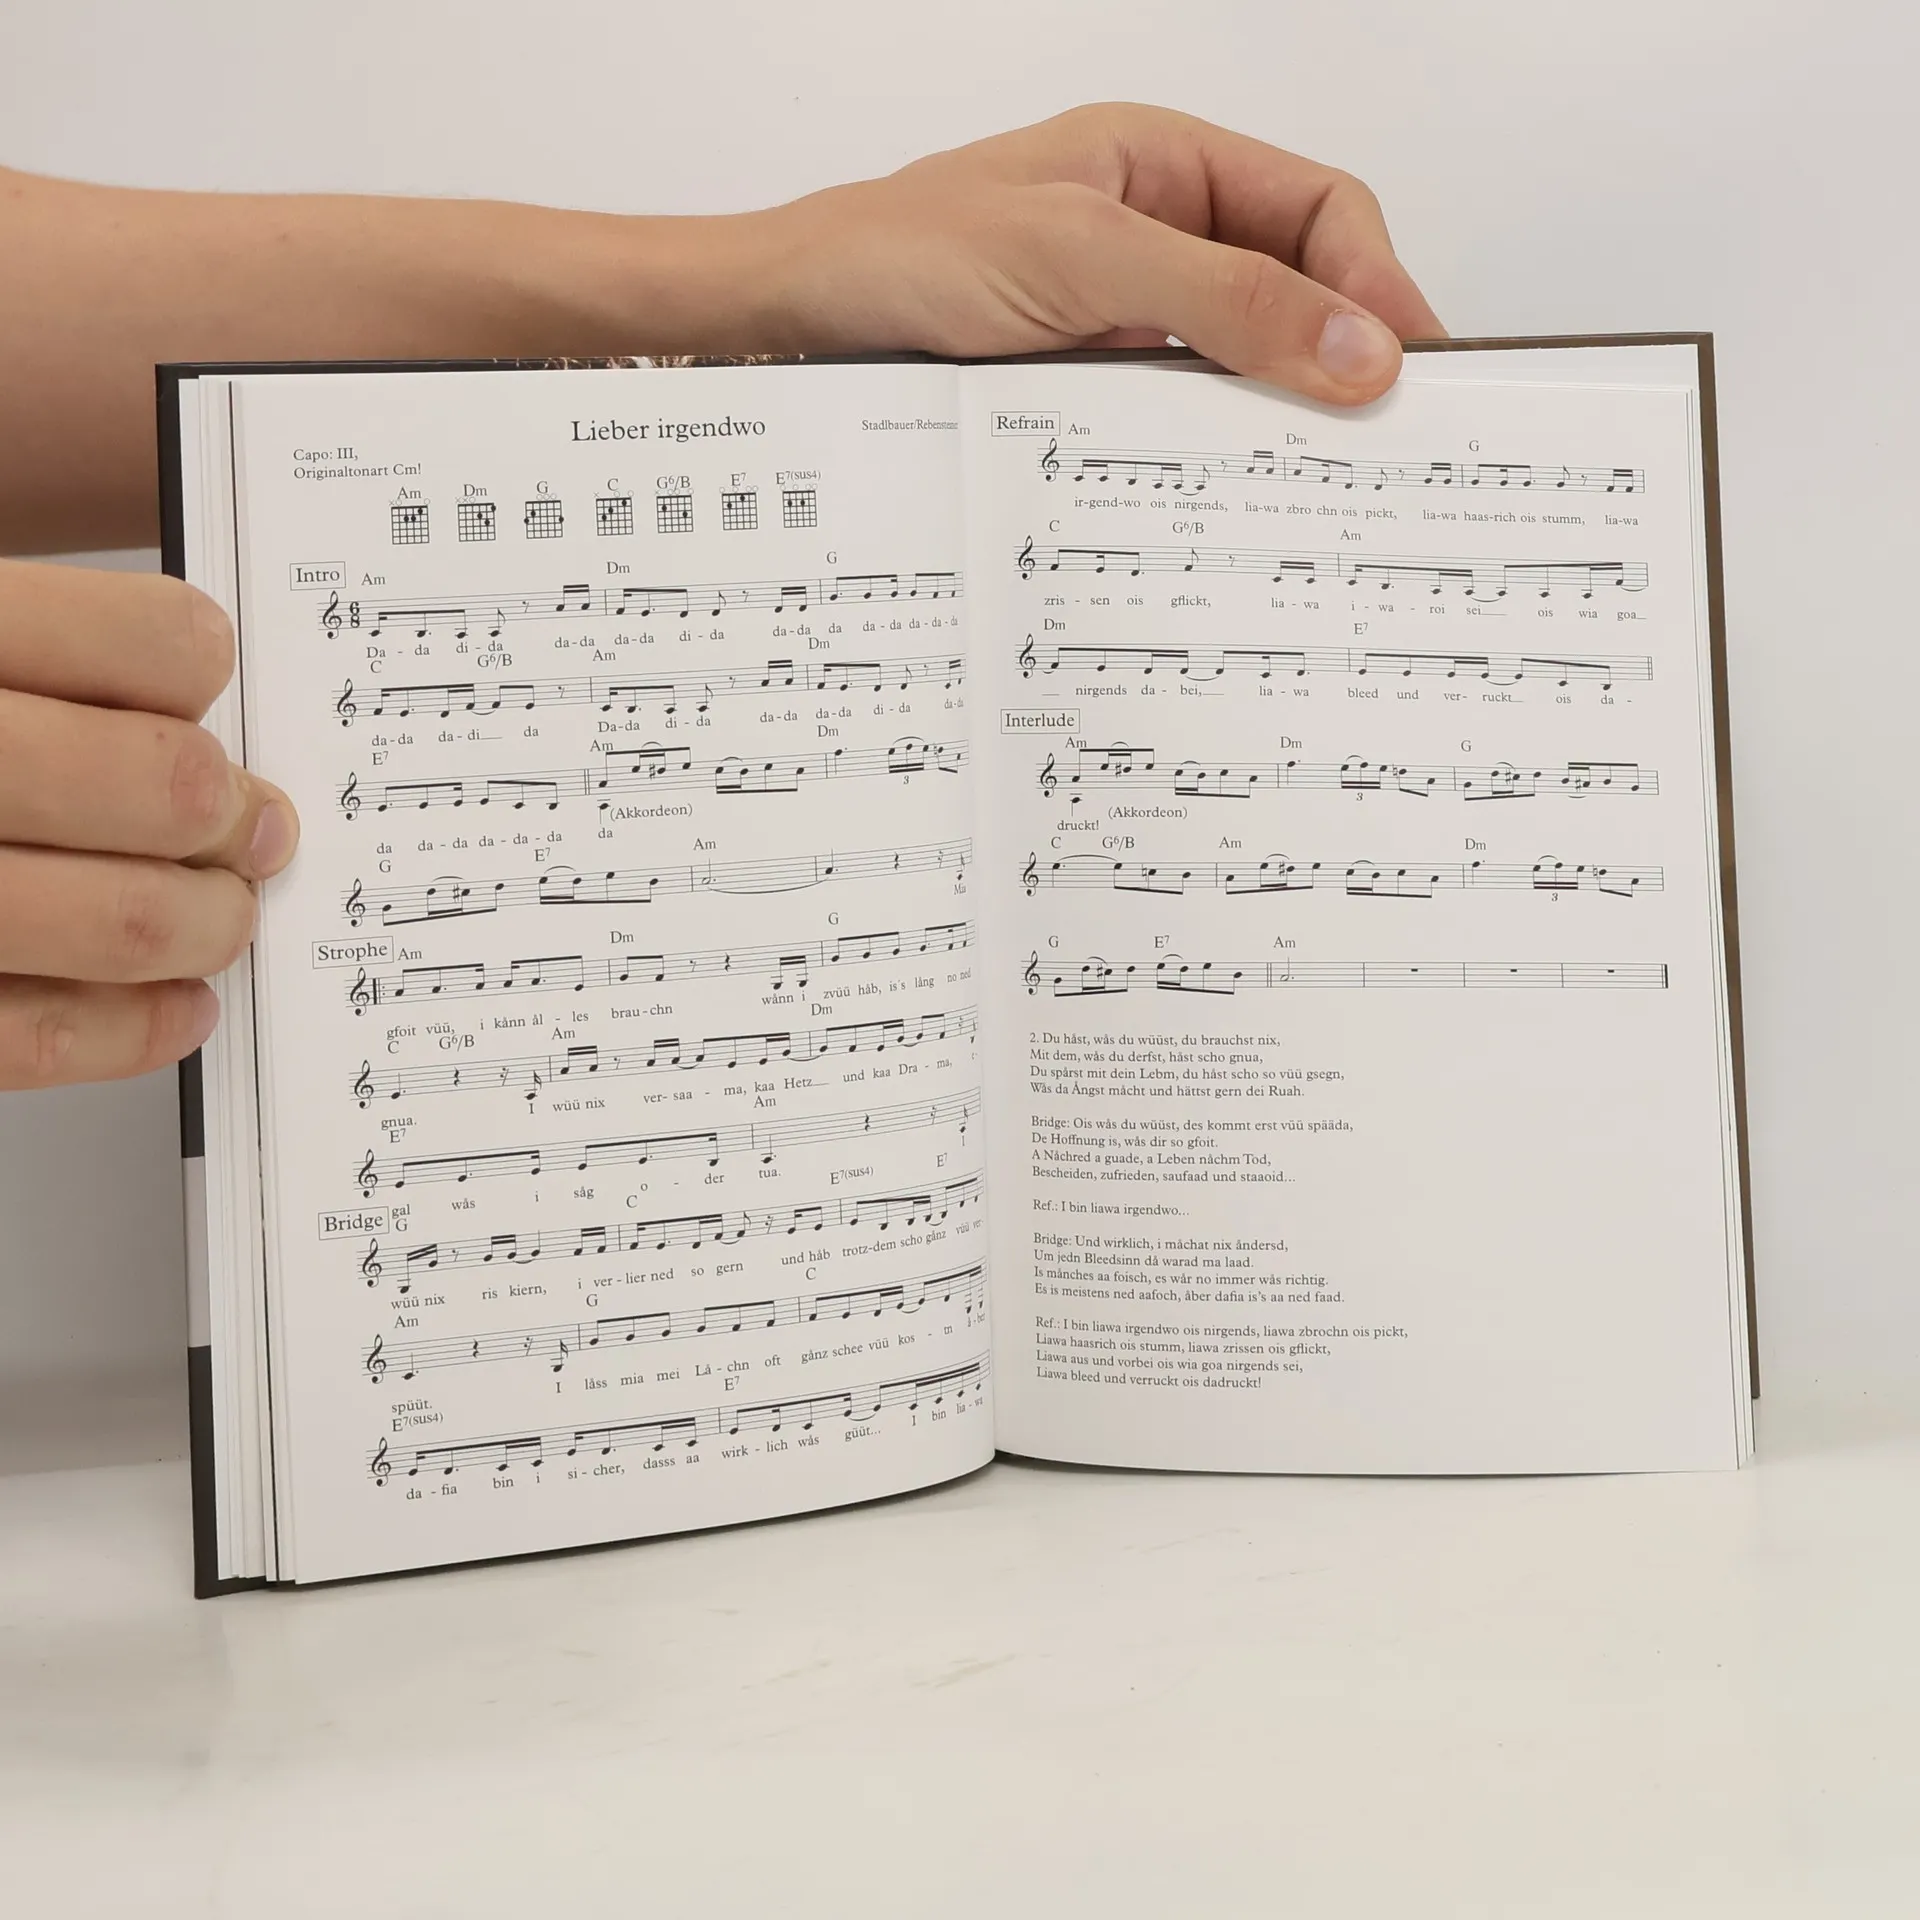 Lieber irgendwo
Stadlbauer/Rebensteiner
Capo: III,
Originaltonart Cm!
Am Dm G C G6/B E7 E7(sus4)
Intro Am Dm G
6
8
Da - da di - da da-da da-da di - da da-da da da - da da - da - da
C G6/B Am Dm
da-da da-di__ da Da-da di - da da-da da-da di - da da-da
E7 Am Dm
3
(Akkordeon)
da da - da da - da - da da
G E7 Am
Mia
Strophe Am Dm G
gfoit vüü, i kånn ål - les brau-chn wånn i zvüü håb, is's lång no ned
C G6/B Am Dm
gnua. I wüü nix ver- saa - ma, kaa Hetz__ und kaa Dra - ma,
E7 Am
gal wås i såg o - der tua. I
Bridge G C E7(sus4) E7
wüü nix ris kiern, i ver-lier ned so gern und håb trotz-dem scho gånz vüü ver-
Am G C
spüüt. I låss mia mei Lå - chn oft gånz schee vüü kos - tn å - ber
E7(sus4) E7
da - fia bin i si - cher, dasss aa wirk - lich wås güüt... I bin lia - wa
Refrain Am Dm G
ir-gend-wo ois nirgends, lia-wa zbro chn ois pickt, lia-wa haas-rich ois stumm, lia-wa
C G6/B Am
zris - sen ois gflickt, lia - wa i - wa - roi sei__ ois wia goa__
Dm E7
__ nirgends da - bei,__ lia - wa bleed und ver- ruckt__ ois da -
Interlude
Am Dm G
3
(Akkordeon)
druckt!
C G6/B Am Dm
3
G E7 Am
2. Du håst, wås du wüüst, du brauchst nix,
Mit dem, wås du derfst, håst scho gnua,
Du spårst mit dein Lebm, du håst scho so vüü gsegn,
Wås da Ångst måcht und hättst gern dei Ruah.
Bridge: Ois wås du wüüst, des kommt erst vüü spääda,
De Hoffnung is, wås dir so gfoit.
A Nåchred a guade, a Leben nåchm Tod,
Bescheiden, zufrieden, saufaad und staaoid...
Ref.: I bin liawa irgendwo...
Bridge: Und wirklich, i måchat nix åndersd,
Um jedn Bleedsinn då warad ma laad.
Is månches aa foisch, es wår no immer wås richtig.
Es is meistens ned aafoch, åber dafia is's aa ned faad.
Ref.: I bin liawa irgendwo ois nirgends, liawa zbrochn ois pickt,
Liawa haasrich ois stumm, liawa zrissen ois gflickt,
Liawa aus und vorbei ois wia goa nirgends sei,
Liawa bleed und verruckt ois dadruckt!